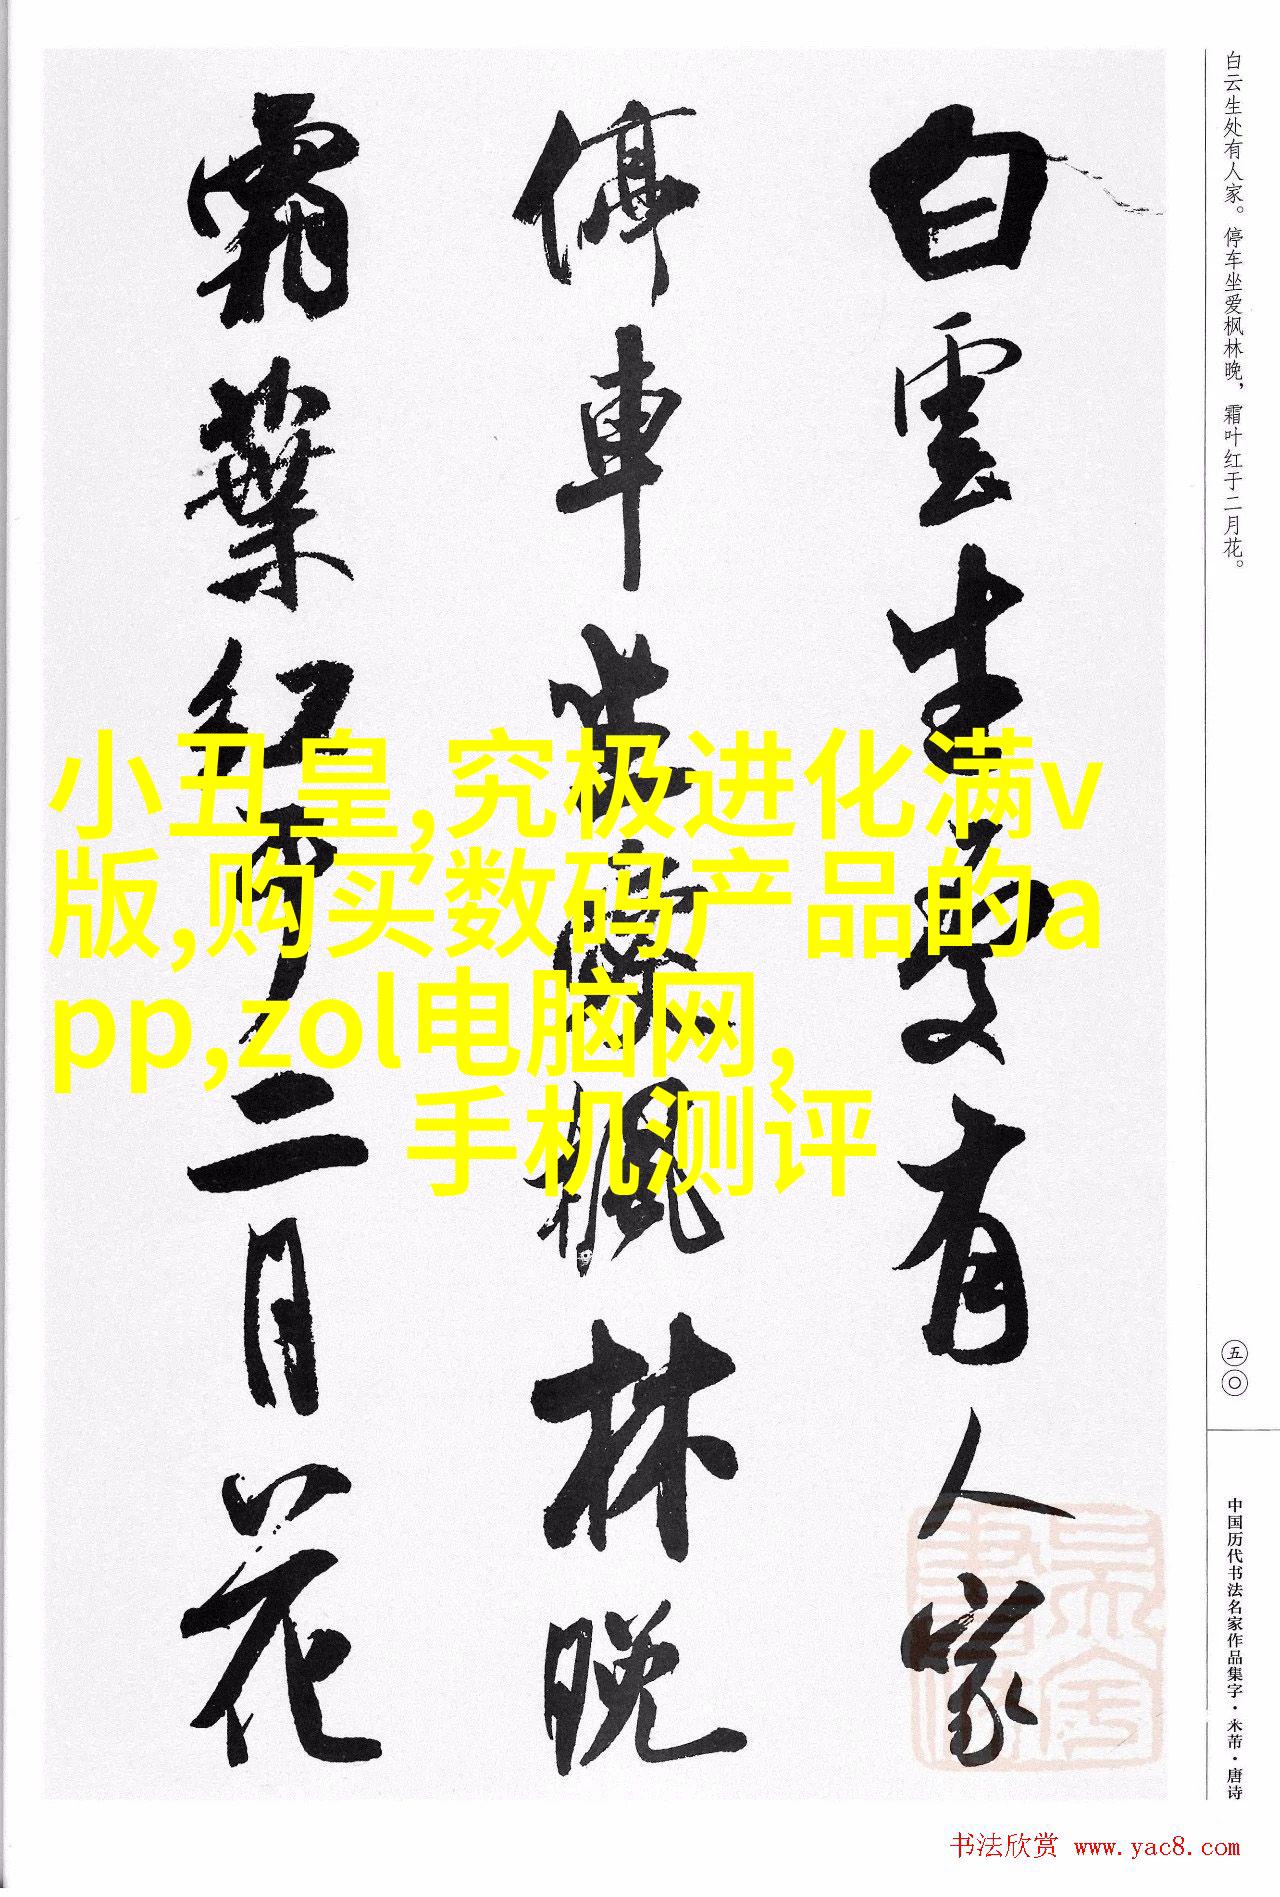 白云生处有人家。停车坐爱枫林晚，霜叶红于二月花。
白雲生處有人家
停車坐愛楓林晚
霜葉紅於二月花
小丑皇,究极进化满v
版,购买数码产品的a
pp,zol电脑网,
手机测评
五〇
中国历代书法名家作品集字·米芾·唐诗
书法欣赏 www.yac8.com